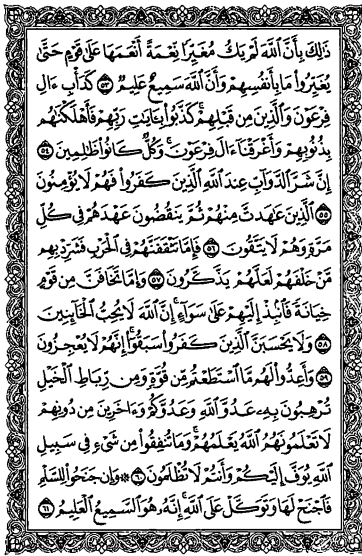 ذَٰلِكَ بِأَنَّ ٱللَّهَ لَمْ يَكُ مُغَيِّرًا نِّعْمَةً أَنْعَمَهَا عَلَىٰ قَوْمٍ حَتَّىٰ
يُغَيِّرُوا۟ مَا بِأَنفُسِهِمْ وَأَنَّ ٱللَّهَ سَمِيعٌ عَلِيمٌ ٥٣ كَدَأْبِ ءَالِ
فِرْعَوْنَ وَٱلَّذِينَ مِن قَبْلِهِمْ كَذَّبُوا۟ بِـَٔايَٰتِ رَبِّهِمْ فَأَهْلَكْنَٰهُم
بِذُنُوبِهِمْ وَأَغْرَقْنَآ ءَالَ فِرْعَوْنَ وَكُلٌّ كَانُوا۟ ظَٰلِمِينَ ٥٤
إِنَّ شَرَّ ٱلدَّوَآبِّ عِندَ ٱللَّهِ ٱلَّذِينَ كَفَرُوا۟ فَهُمْ لَا يُؤْمِنُونَ
٥٥ ٱلَّذِينَ عَٰهَدتَّ مِنْهُمْ ثُمَّ يَنقُضُونَ عَهْدَهُمْ فِى كُلِّ
مَرَّةٍ وَهُمْ لَا يَتَّقُونَ ٥٦ فَإِمَّا تَثْقَفَنَّهُمْ فِى ٱلْحَرْبِ فَشَرِّدْ بِهِم
مَّنْ خَلْفَهُمْ لَعَلَّهُمْ يَذَّكَّرُونَ ٥٧ وَإِمَّا تَخَافَنَّ مِن قَوْمٍ
خِيَانَةً فَٱنۢبِذْ إِلَيْهِمْ عَلَىٰ سَوَآءٍ إِنَّ ٱللَّهَ لَا يُحِبُّ ٱلْخَآئِنِينَ
٥٨ وَلَا يَحْسَبَنَّ ٱلَّذِينَ كَفَرُوا۟ سَبَقُوٓا۟ إِنَّهُمْ لَا يُعْجِزُونَ
٥٩ وَأَعِدُّوا۟ لَهُم مَّا ٱسْتَطَعْتُم مِّن قُوَّةٍ وَمِن رِّبَاطِ ٱلْخَيْلِ
تُرْهِبُونَ بِهِۦ عَدُوَّ ٱللَّهِ وَعَدُوَّكُمْ وَءَاخَرِينَ مِن دُونِهِمْ
لَا تَعْلَمُونَهُمُ ٱللَّهُ يَعْلَمُهُمْ وَمَا تُنفِقُوا۟ مِن شَىْءٍ فِى سَبِيلِ
ٱللَّهِ يُوَفَّ إِلَيْكُمْ وَأَنتُمْ لَا تُظْلَمُونَ ٦٠ ۞ وَإِن جَنَحُوا۟ لِلسَّلْمِ
فَٱجْنَحْ لَهَا وَتَوَكَّلْ عَلَى ٱللَّهِ إِنَّهُۥ هُوَ ٱلسَّمِيعُ ٱلْعَلِيمُ ٦١